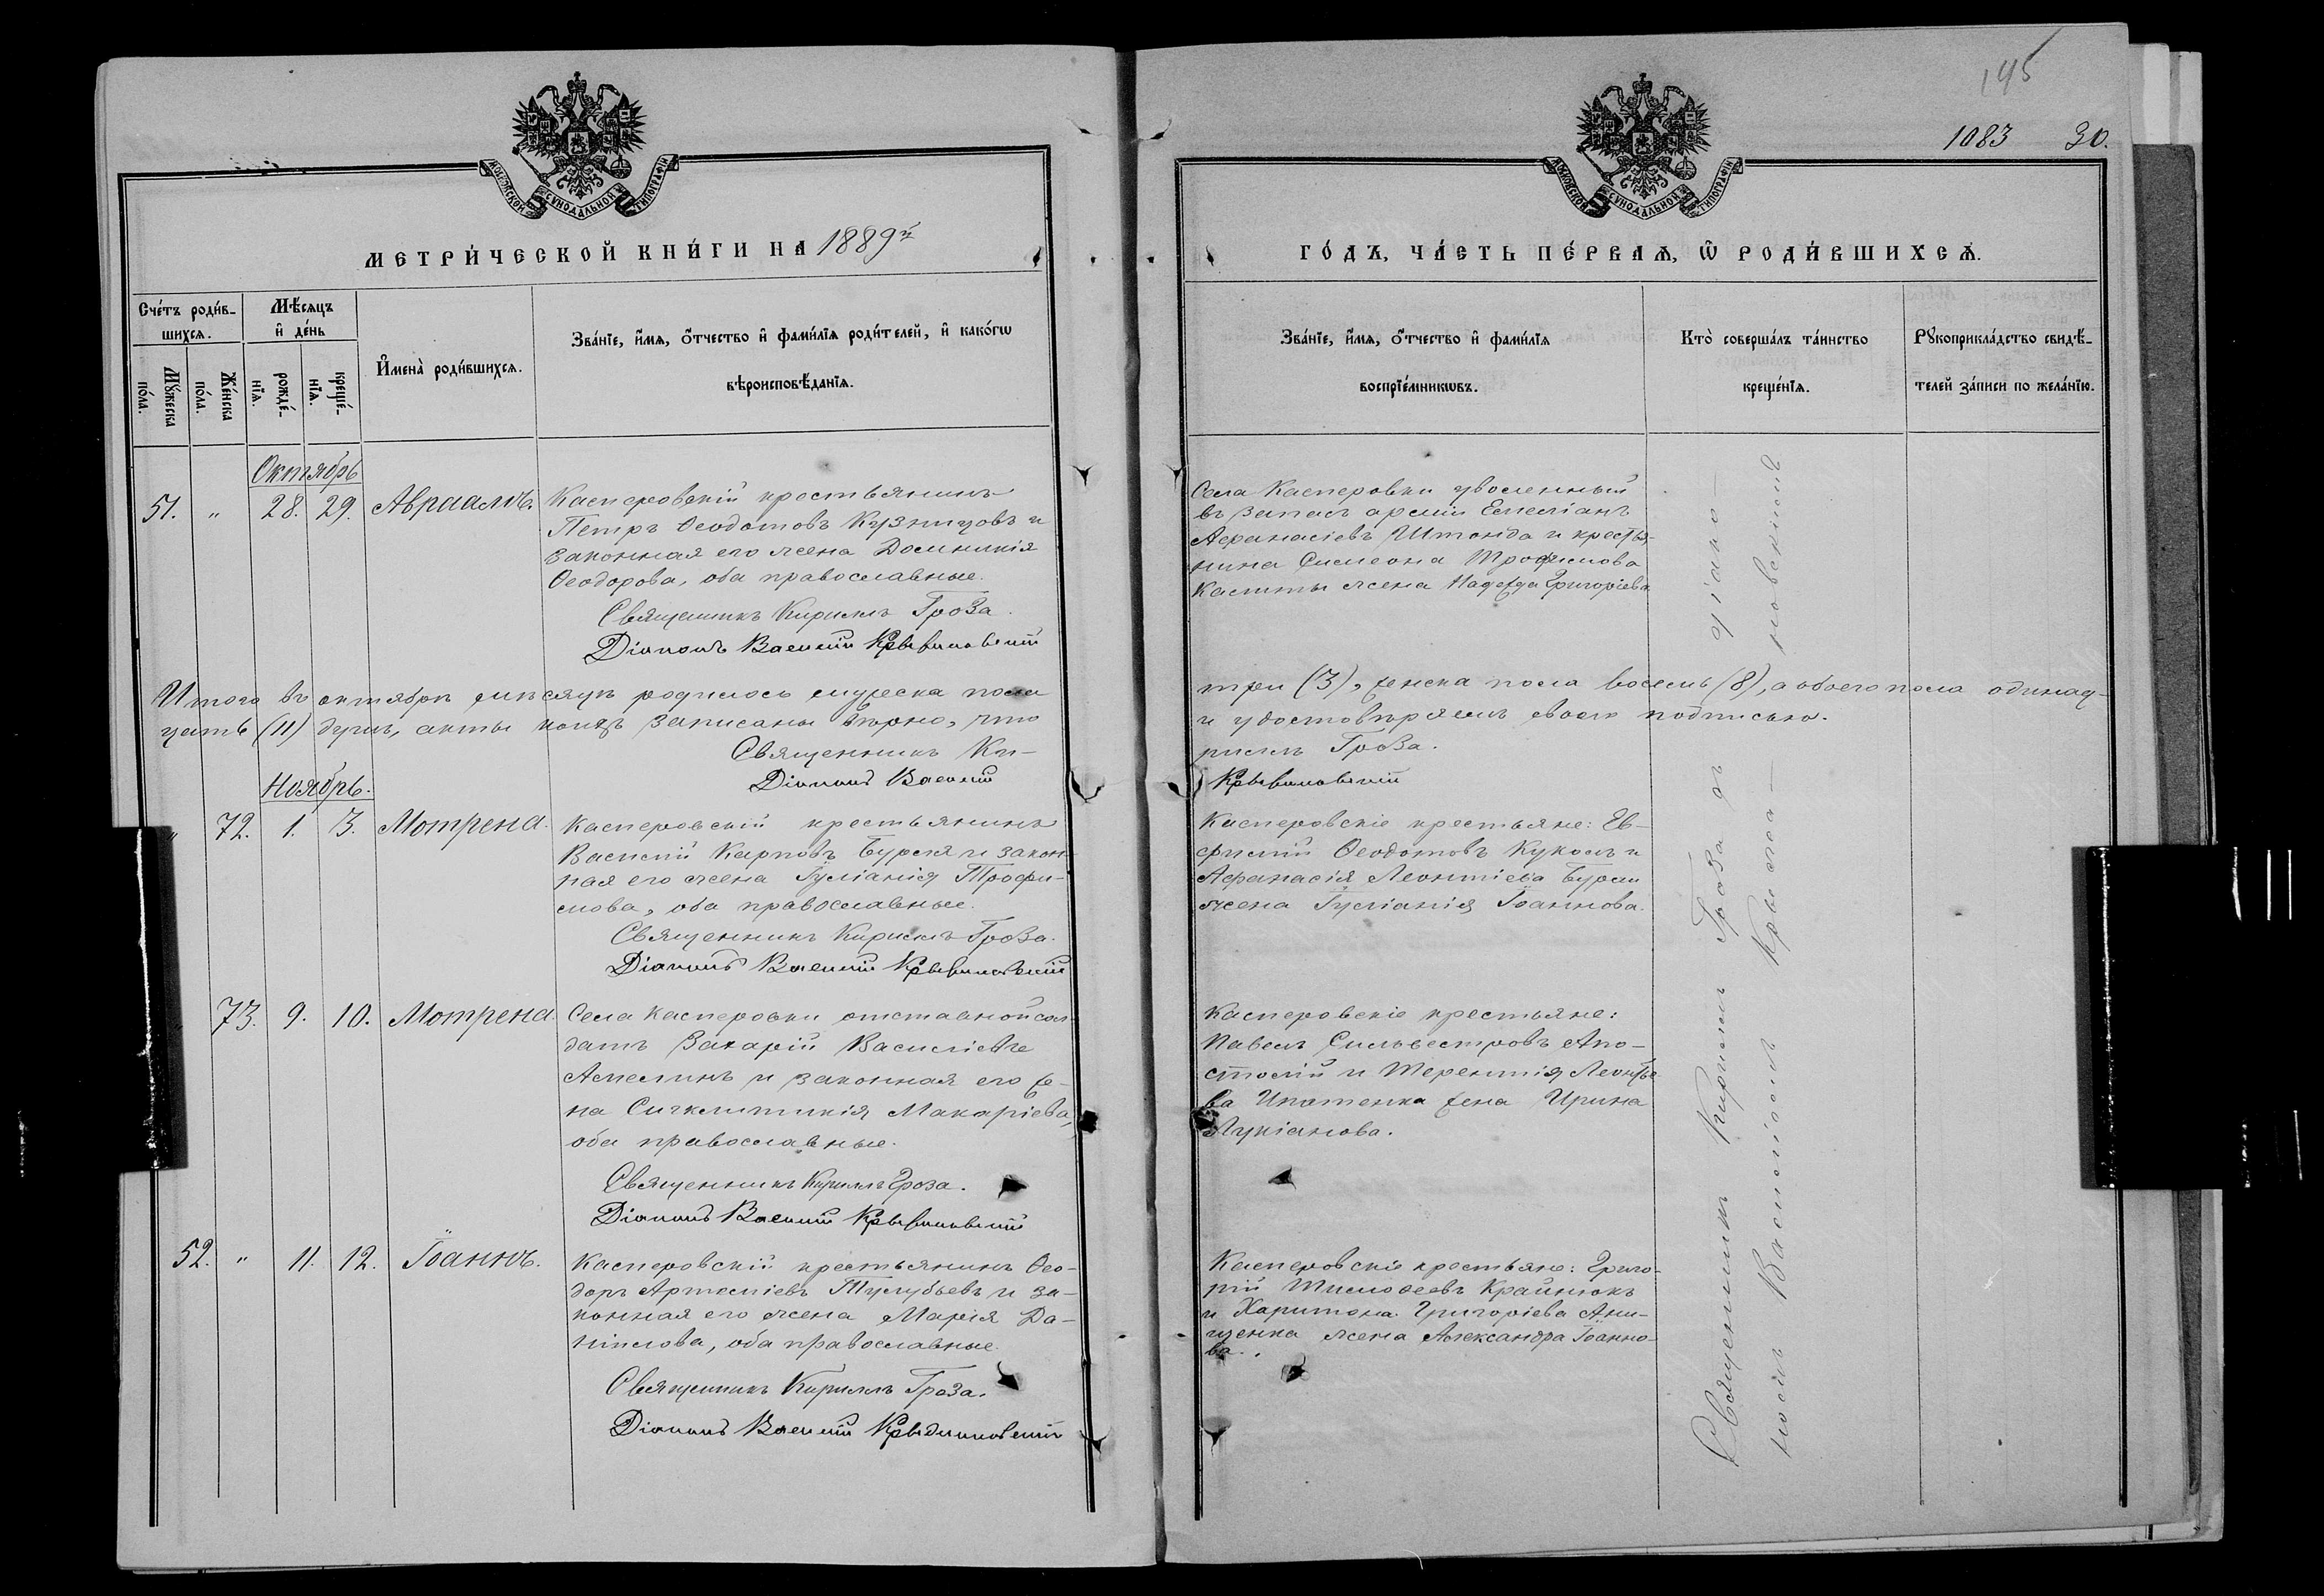 145
1083 30.
МОСКОВСКОЙ СѴНОДАЛЬНОЙ ТИПОГРАФІИ
МОСКОВСКОЙ СѴНОДАЛЬНОЙ ТИПОГРАФІИ
МЕТРИ́ЧЕСКОЙ КНИ́ГИ НА 1889й
ГО́ДЪ, ЧА́СТЬ ПЕ́РВАѦ, Ѿ РОДИ́ВШИХСѦ.
Сче́тъ роди́в-
шихсѧ.
Мѣ́сѧцъ
и҆ де́нь
Мꙋ́жеска
по́ла.
Же́нска
по́ла.
рожде́-
нїѧ.
креще́-
нїѧ.
И҆мена̀ роди́вшихсѧ.
Зва́нїе, и҆́мѧ, ѻ҆́тчество и҆ фами́лїѧ роди́телей, и҆ како́гѡ
вѣроисповѣ́данїѧ.
Зва́нїе, и҆́мѧ, ѻ҆́тчество и҆ фами́лїѧ
воспрїе́мникѡвъ.
Кто̀ соверша́лъ та́инство
креще́нїѧ.
Рꙋкоприкла́дство свидѣ́-
телей за́писи по жела́нїю.
Октябрь
51. " 28. 29. Авраамъ.
Касперовскій крестьянинъ
Петръ Ѳеодотовъ Кузнецовъ и
законная его жена Домникія
Ѳеодорова, оба православные.
Священникъ Кириллъ Гроза.
Діаконъ Василій
Села Касперовки уволенный
въ запасъ арміи Емеліанъ
Аѳанасіевъ Штонда и крестья-
нина Симеона Трофимова
Калиты жена Надежда Григоріева.
Итого въ октябрѣ мѣсяцѣ родилось мужеска пола
три (3), женска пола восемь (8), а обоего пола одинад-
цать (11) душъ, акты коихъ записаны вѣрно, что
и удостовѣряемъ своею подписью.
Священникъ Ки-
риллъ Гроза.
Діаконъ Василій
Ноябрь.
" 72. 1. 3. Мотрена.
Касперовскій крестьянинъ
Василій Карповъ Бурся и закон-
ная его жена Іуліанія Трофи-
мова, оба православные.
Священникъ Кириллъ Гроза.
Діаконъ Василій
Касперовскіе крестьяне: Ев-
фимій Ѳеодотовъ Куколъ и
Аѳанасія Леонтіева Бурси
жена Іуліанія Іоаннова.
73. 9. 10. Мотрена.
Села Касперовки отставной сол-
датъ Захарій Василіевъ
Амелинъ и законная его же-
на Синклитикія Макаріева,
оба православные.
Священникъ Кириллъ Гроза.
Діаконъ Василій
Касперовскіе крестьяне:
Павелъ Сильвестровъ Апо-
столій и Терентія Леонтье-
ва Ипатенка жена Ирина
Лукіанова.
52. " 11. 12. Іоаннъ.
Касперовскій крестьянинъ Ѳео-
доръ Артеміевъ Тулубьевъ и за-
конная его жена Марія Да-
ніилова, оба православные.
Священникъ Кириллъ Гроза.
Діаконъ Василій
Касперовскіе крестьяне: Григо-
рій Тимоѳеевъ Крайнюкъ
и Харитона Григоріева Ани-
щенка жена Александра Іоанно-
ва.
Священникъ Кириллъ Гроза съ діако-
номъ Василіемъ